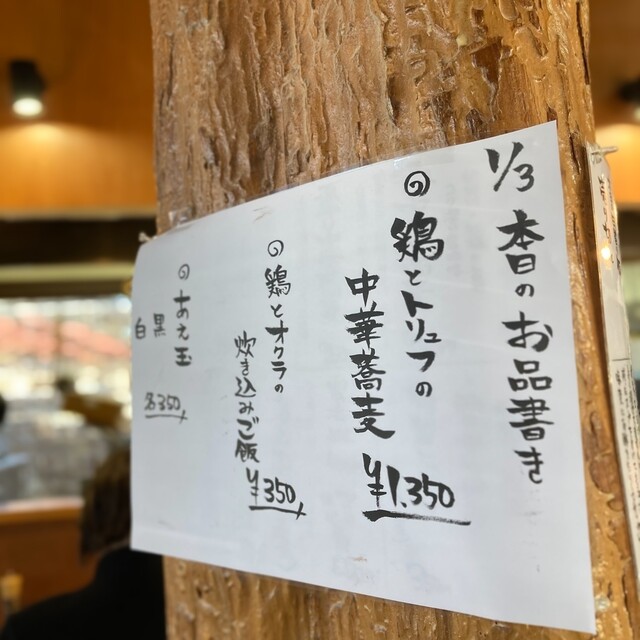 1/3 本日のお品書き
鶏とトリュフの
中華蕎麦 ¥1.350
鶏とオクラの
炊き込みご飯
¥350
あえ玉
黒
白
各350